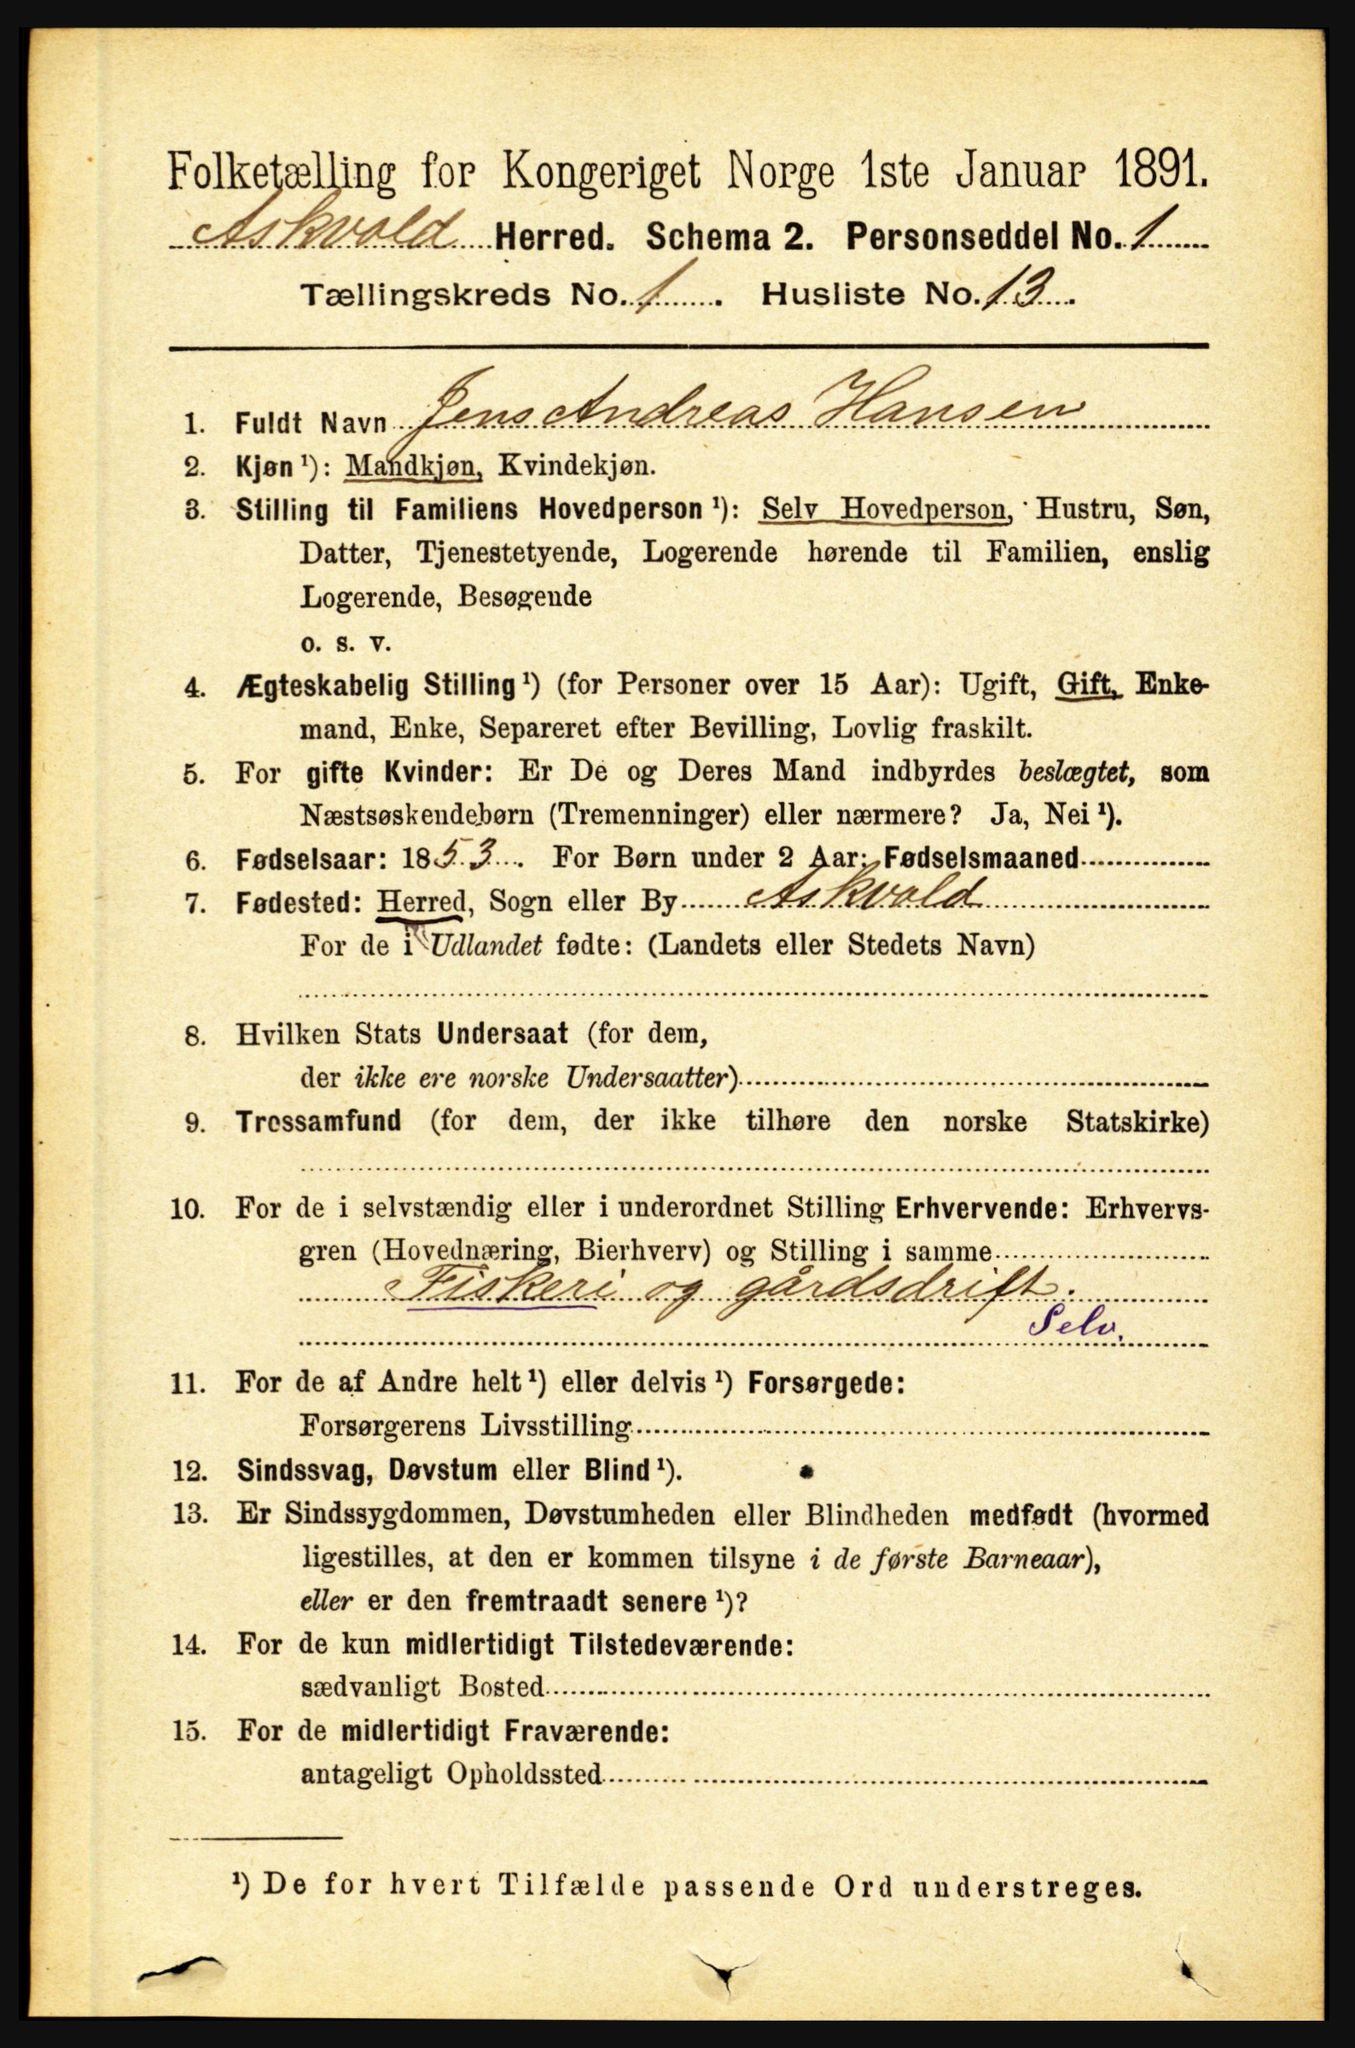 Folketælling for Kongeriget Norge 1ste Januar 1891.
Askvold Herred. Schema 2. Personseddel No. 1
Tællingskreds No. 1. Husliste No. 13.
1. Fuldt Navn Jens Andreas Hansen
2. Kjøn ¹): Mandkjøn, Kvindekjøn.
3. Stilling til Familiens Hovedperson ¹): Selv Hovedperson, Hustru, Søn,
Datter, Tjenestetyende, Logerende hørende til Familien, enslig
Logerende, Besøgende
o. s. v.
4. Ægteskabelig Stilling ¹) (for Personer over 15 Aar): Ugift, Gift, Enke-
mand, Enke, Separeret efter Bevilling, Lovlig fraskilt.
5. For gifte Kvinder: Er De og Deres Mand indbyrdes beslægtet, som
Næstsøskendebørn (Tremenninger) eller nærmere? Ja, Nei ¹).
6. Fødselsaar: 1853. For Børn under 2 Aar: Fødselsmaaned
7. Fødested: Herred, Sogn eller By Askvold
For de i Udlandet fødte: (Landets eller Stedets Navn)
8. Hvilken Stats Undersaat (for dem,
der ikke ere norske Undersaatter)
9. Trossamfund (for dem, der ikke tilhøre den norske Statskirke)
10. For de i selvstændig eller i underordnet Stilling Erhvervende: Erhvervs-
gren (Hovednæring, Bierhverv) og Stilling i samme
Fiskeri og gårdsdrift.
Selv.
11. For de af Andre helt ¹) eller delvis ¹) Forsørgede:
Forsørgerens Livsstilling
12. Sindssvag, Døvstum eller Blind ¹).
13. Er Sindssygdommen, Døvstumheden eller Blindheden medfødt (hvormed
ligestilles, at den er kommen tilsyne i de første Barneaar),
eller er den fremtraadt senere ¹)?
14. For de kun midlertidigt Tilstedeværende:
sædvanligt Bosted
15. For de midlertidigt Fraværende:
antageligt Opholdssted
¹) De for hvert Tilfælde passende Ord understreges.